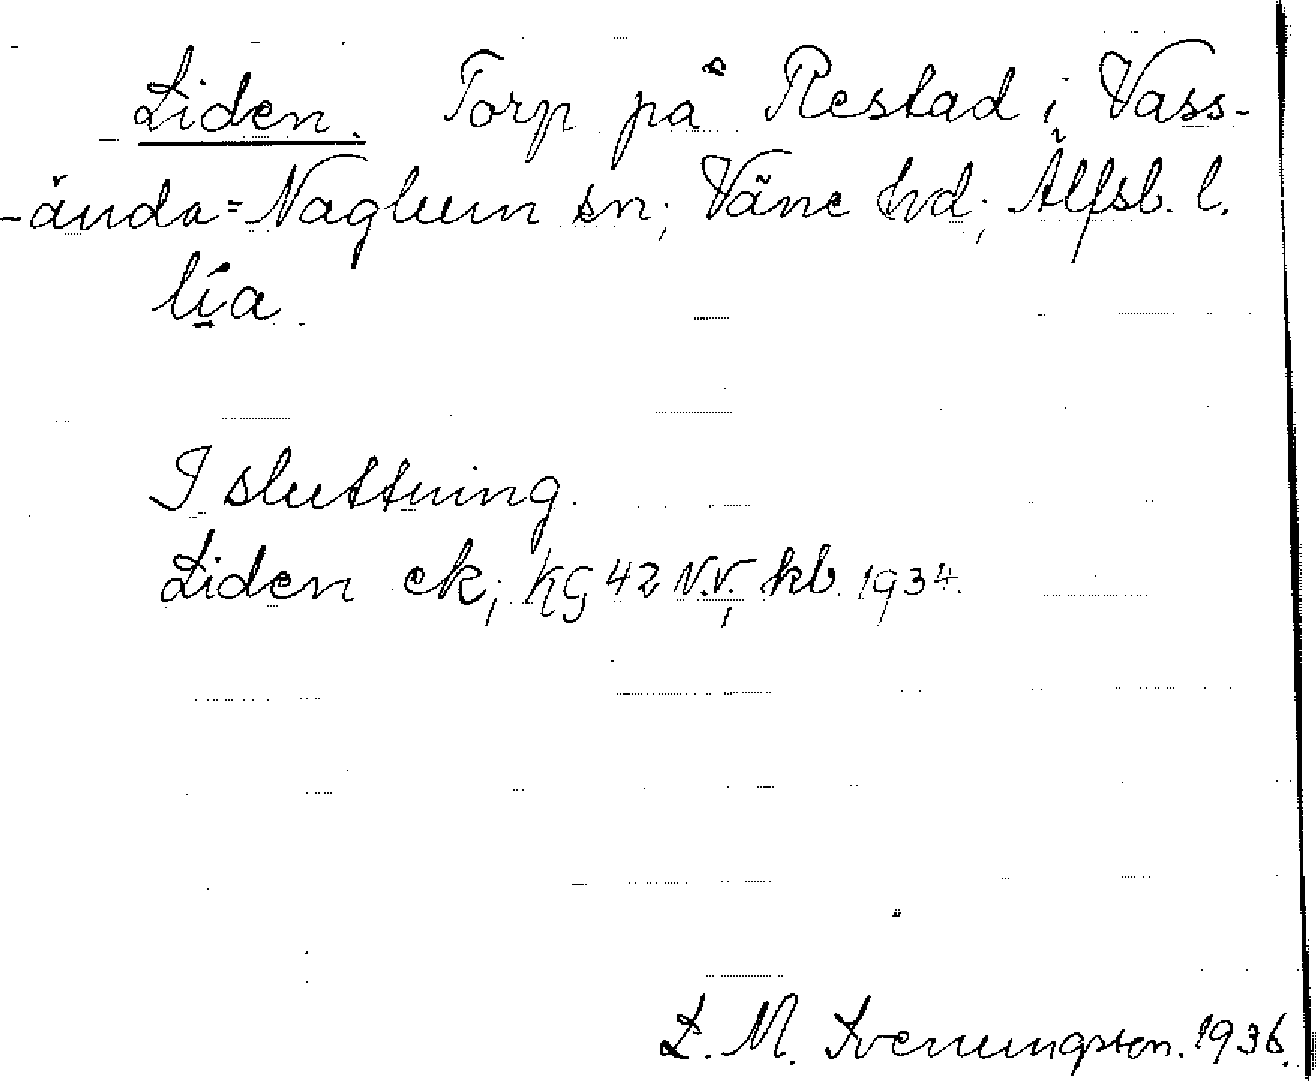 Liden. Torp på Restad i Vass-
-ända=Naglum sn; Väne hd; Älfsb. l.
lía.
I sluttning.
Liden ek; KG 42 N.V; kb. 1934.
L. M. Svenungsson. 1936.